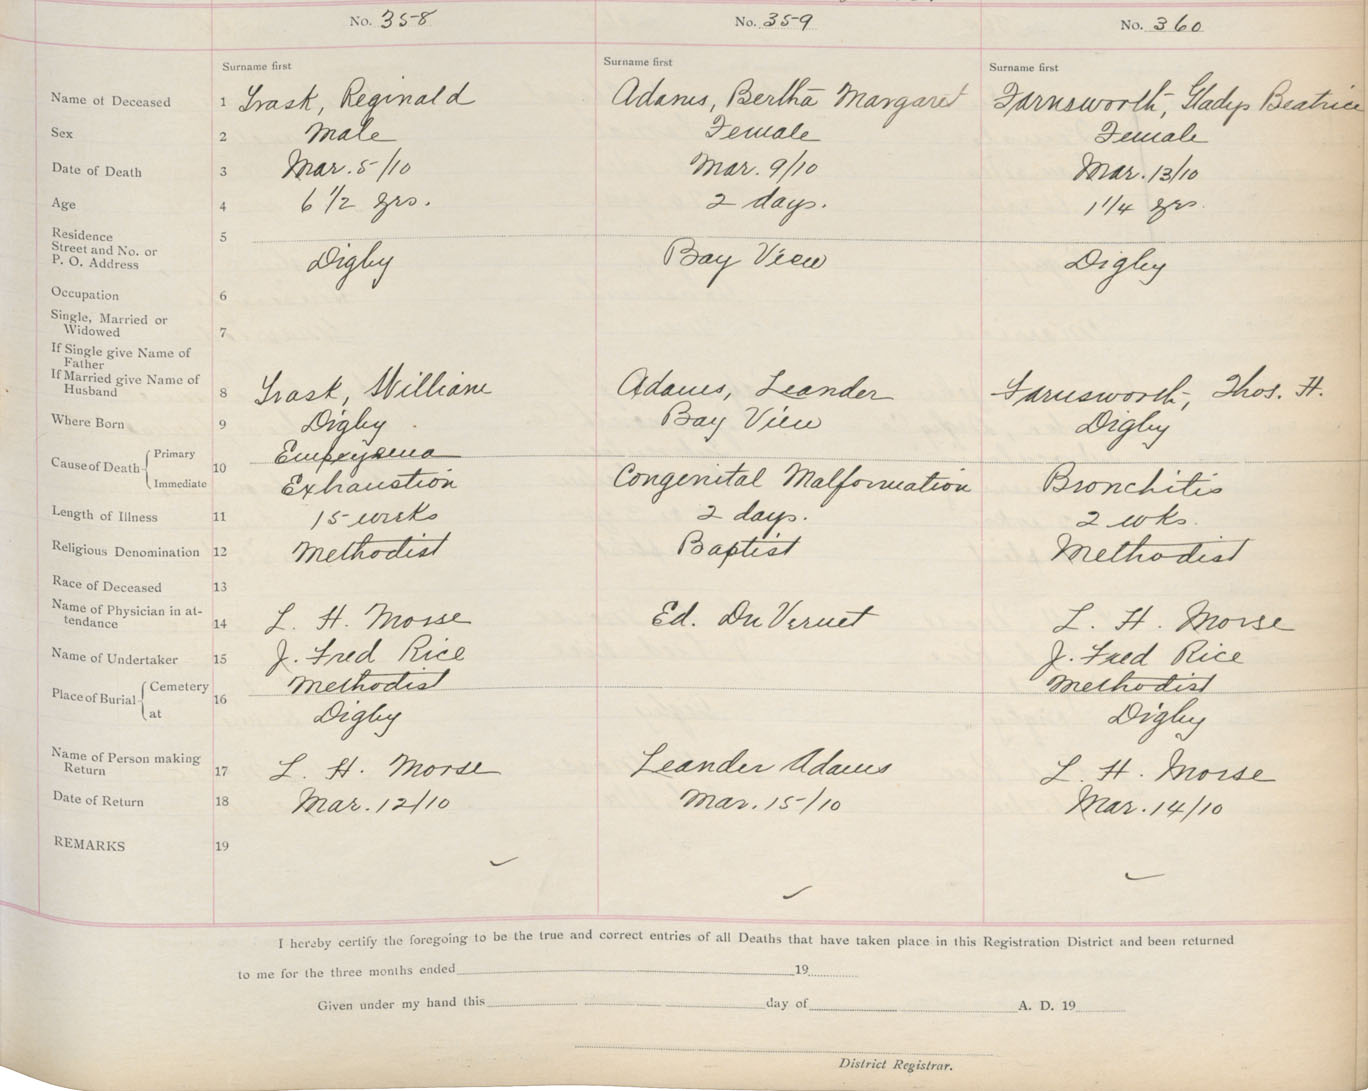 No. 358 No. 359 No. 360
Surname first Surname first Surname first
Name of Deceased 1 Trask, Reginald Adams, Bertha Margaret Farnsworth, Gladys Beatrice
Sex 2 Male Female Female
Date of Death 3 Mar. 5/10 Mar. 9/10 Mar. 13/10
Age 4 6 1/2 yrs. 2 days. 1 1/4 yrs
Residence 5
Street and No. or
P. O. Address Digby Bay View Digby
Occupation 6
Single, Married or
Widowed 7
If Single give Name of
Father
If Married give Name of
Husband 8 Trask, William Adams, Leander Farnsworth, Thos. H.
Where Born 9 Digby Bay View Digby
Cause of Death Primary Empyema
10
Immediate Exhaustion Congenital Malformation Bronchitis
Length of Illness 11 15 weeks 2 days. 2 wks.
Religious Denomination 12 Methodist Baptist Methodist
Race of Deceased 13
Name of Physician in at-
tendance 14 L. H. Morse Ed. Du Vernet L. H. Morse
Name of Undertaker 15 J. Fred Rice J. Fred Rice
Place of Burial Cemetery Methodist Methodist
16
at Digby Digby
Name of Person making
Return 17 L. H. Morse Leander Adams L. H. Morse
Date of Return 18 Mar. 12/10 Mar. 15/10 Mar. 14/10
REMARKS 19
I hereby certify the foregoing to be the true and correct entries of all Deaths that have taken place in this Registration District and been returned
to me for the three months ended 19
Given under my hand this day of A. D. 19
District Registrar.